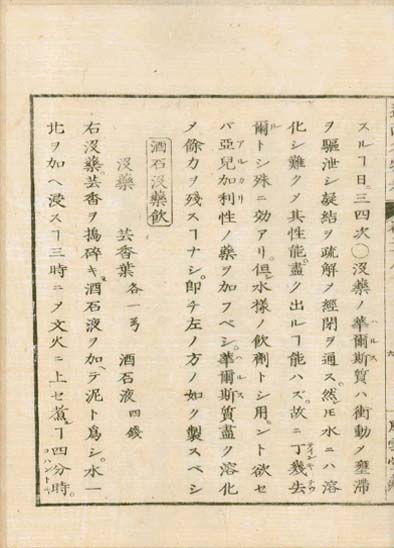 スルヿ日ニ三四次〇沒藥ノ華爾斯質ハ衝動ヲ壅滯
ヲ驅泄シ凝結ヲ疏解メ經閉ヲ通ス。然𪜈水ニハ溶
化シ難クメ其性能盡ク出ルヿ能ハズ。故ニ丁幾去
爾トシ殊ニ効アリ。但シ水樣ノ飲劑トシ用ント欲セ
バ亞兒加利性ノ藥ヲ加フベシ。華爾斯質盡ク溶化
メ餘力ヲ殘スヿナシ。即チ左ノ方ノ如ク製スベシ
酒石沒藥飲
沒藥 芸香葉 各一弓 酒石液 四錢
右沒藥。芸香ヲ搗碎キ。酒石液ヲ加ヘテ泥ト爲シ。水一
北ヲ加ヘ浸スヿ三時ニメ文火ニ上セ煮ルヿ四分時。